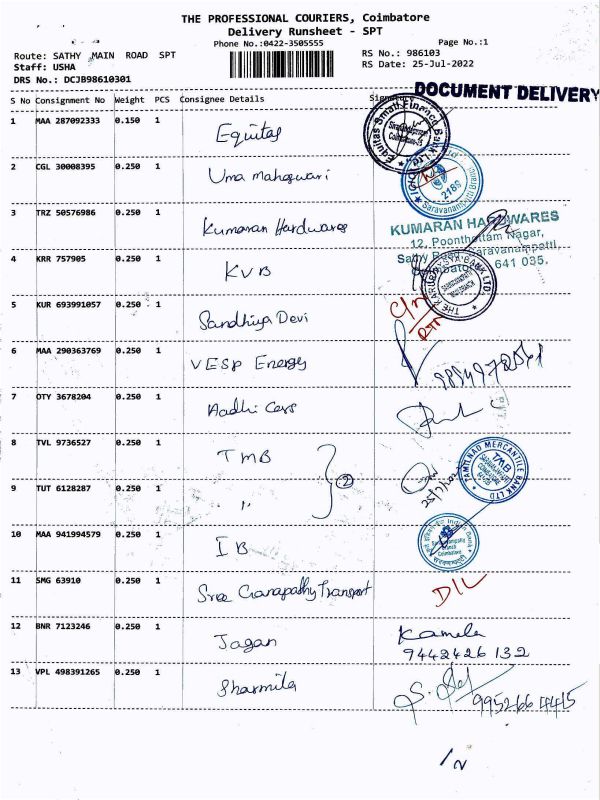 THE PROFESSIONAL COURIERS, Coimbatore
Delivery Runsheet - SPT
Phone No.:0422-3505555
Page No.:1
Route: SATHY MAIN ROAD SPT
RS No.: 986103
Staff: USHA
RS Date: 25-Jul-2022
DRS No.: DCJB98610301
DOCUMENT DELIVERY
S No Consignment No Weight PCS Consignee Details
1 MAA 287092333 0.150 1 Equitas
2 CGL 30008395 0.250 1 Uma Maheswari
2188
Saravanampatti
3 TRZ 50576986 0.250 1 Kumaran Hardwares
KUMARAN HARDWARES
12, Poonthottam Nagar,
641 035.
4 KRR 757905 0.250 1 KVB
THE KARUR VYSYA BANK LTD
5 KUR 693991057 0.250 1 Sandhiya Devi
6 MAA 290363769 0.250 1 VESP Energy
7 OTY 3678204 0.250 1 Aadhi Cars
8 TVL 9736527 0.250 1 TMB
TAMILNAD MERCANTILE BANK LTD
TMB
2
9 TUT 6128287 0.250 1 "
10 MAA 941994579 0.250 1 IB
11 SMG 63910 0.250 1 Sree Ganapathy Transport
D/L
12 BNR 7123246 0.250 1 Jagan
Kamala
9442426132
13 VPL 498391265 0.250 1 Sharmila
9952664415